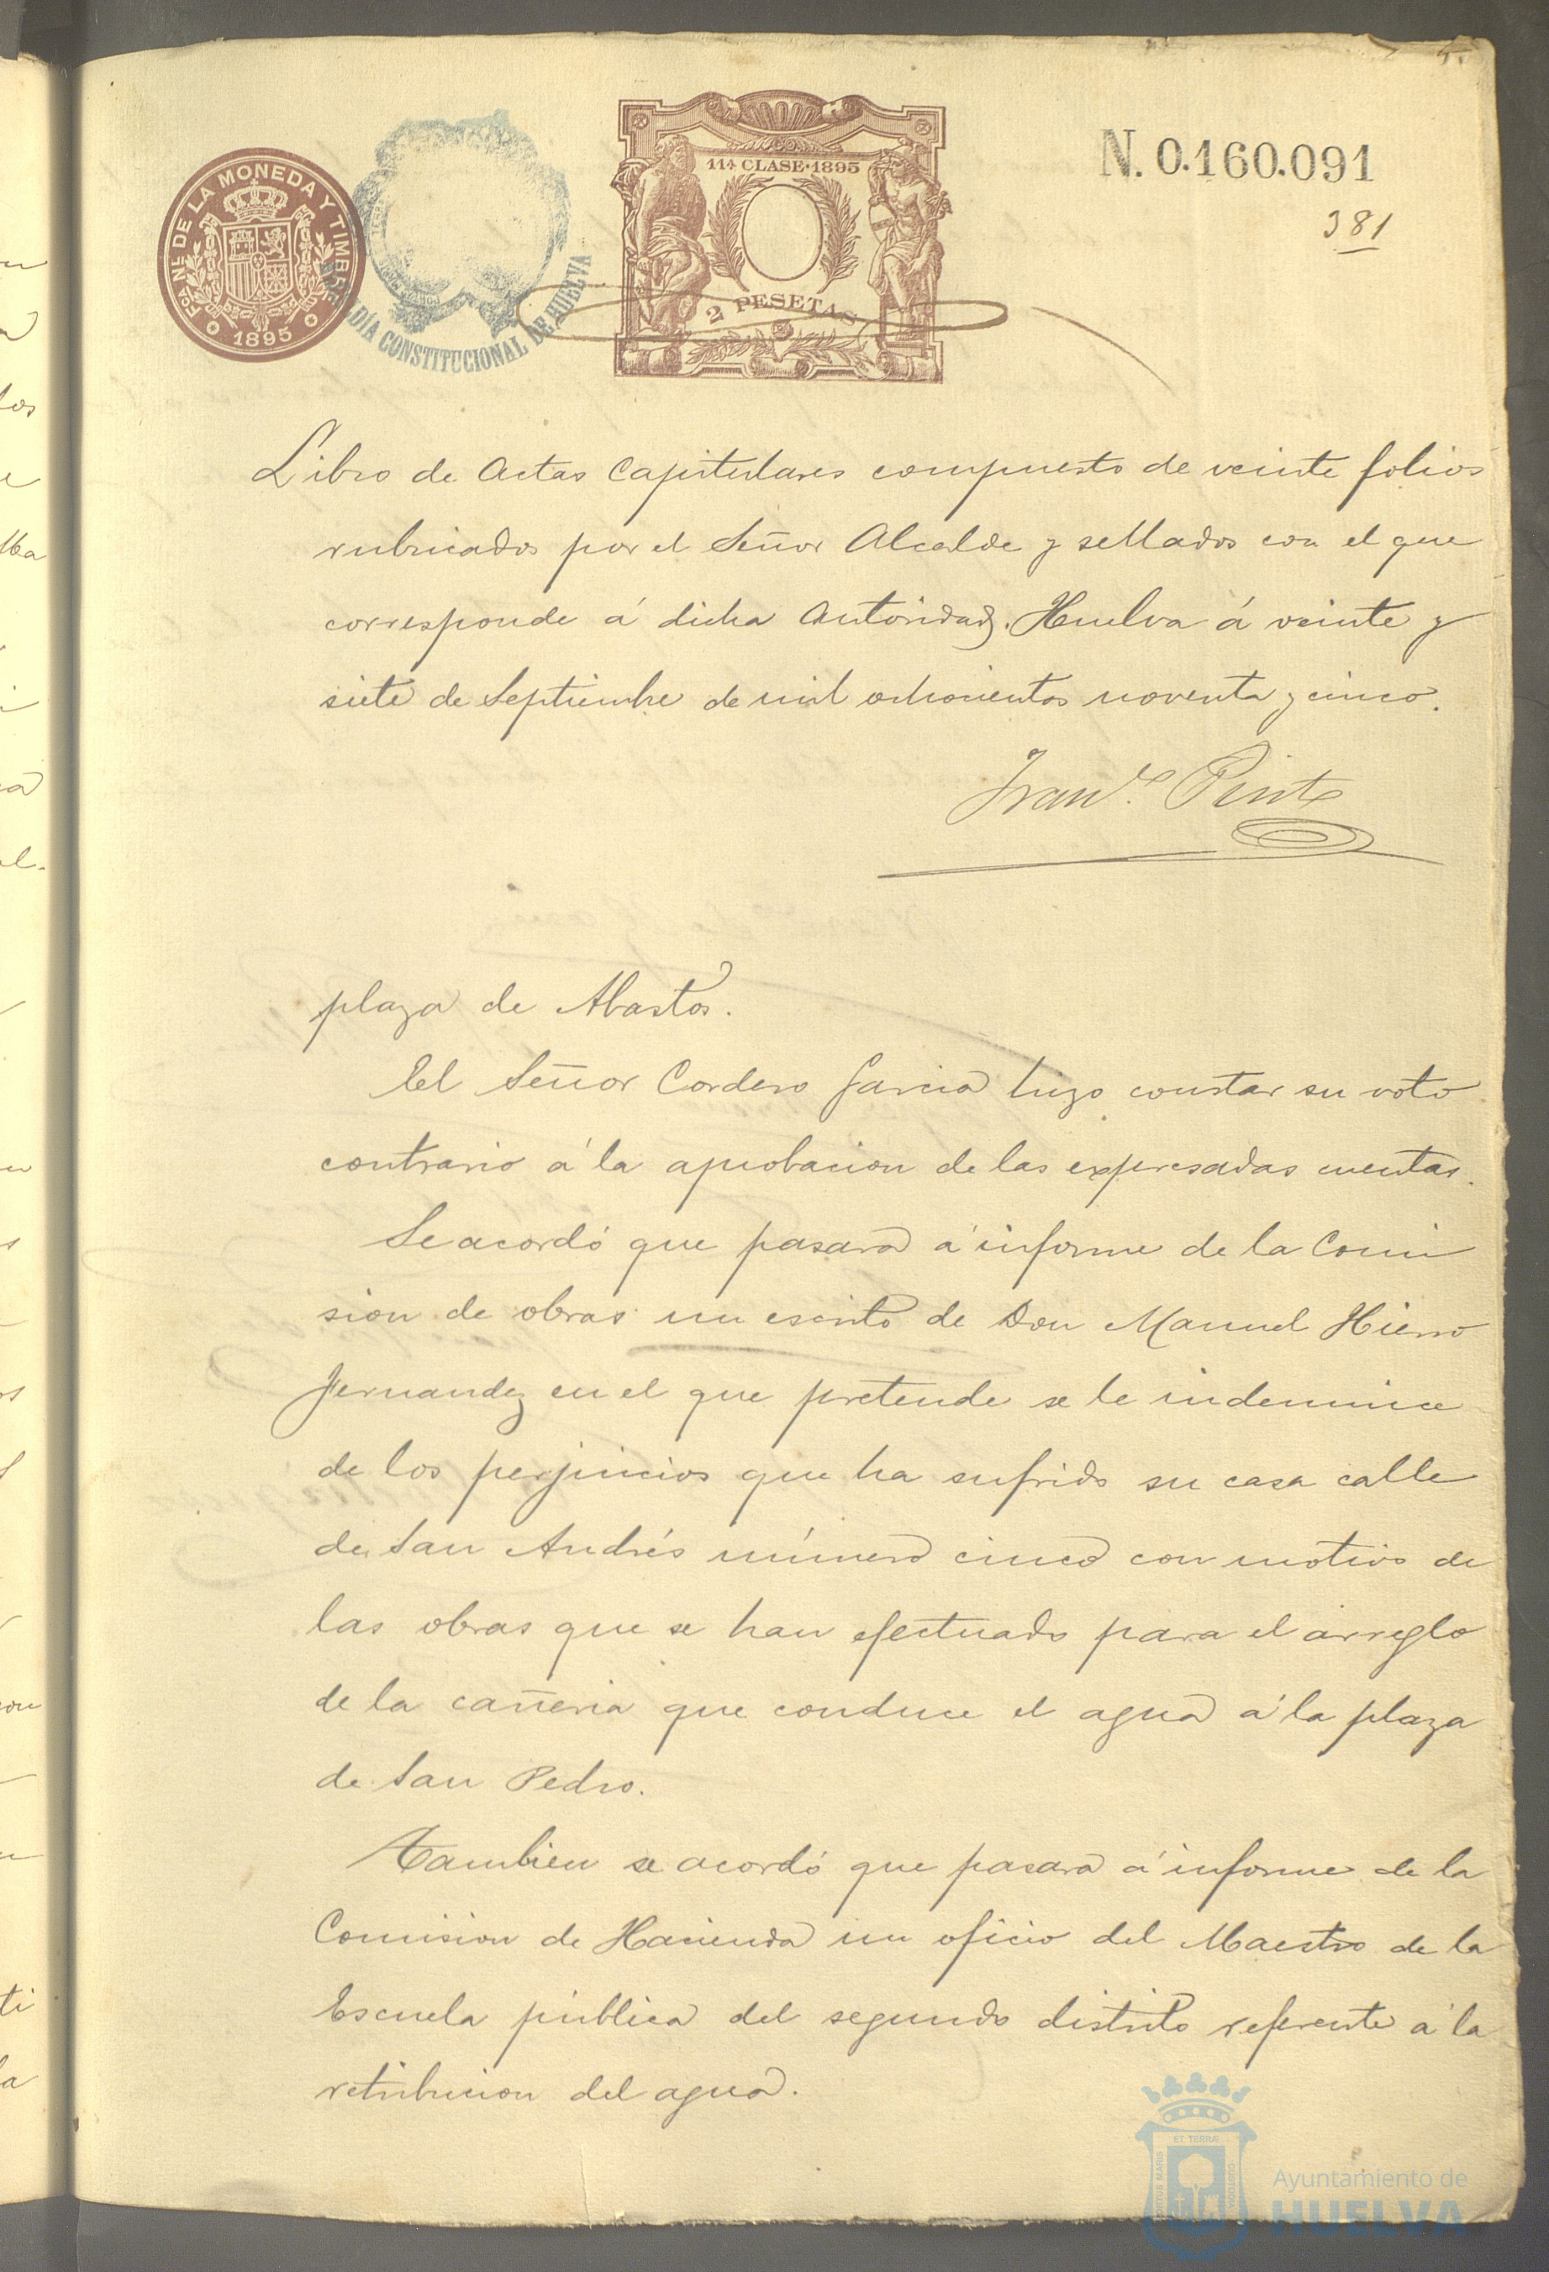 5.
FCA NL DE LA MONEDA Y TIMBRE
1895
ALCALDÍA CONSTITUCIONAL DE HUELVA
11ª CLASE·1895
2 PESETAS
N. 0.160.091
381
Libro de Actas Capitulares compuesto de veinte folios
rubricados por el Señor Alcalde y sellados con el que
corresponde á dicha Autoridad. Huelva á veinte y
siete de Septiembre de mil ochocientos noventa y cinco.
Franco. Pinto
plaza de Abastos.
El Señor Cordero Garcia hizo constar su voto
contrario á la aprobacion de las expresadas cuentas.
Se acordó que pasara á informe de la Comi
sion de obras un escrito de Don Manuel Hierro
Fernandez en el que pretende se le indemnice
de los perjuicios que ha sufrido su casa calle
de San Andrés número cinco con motivo de
las obras que se han efectuado para el arreglo
de la cañeria que conduce el agua á la plaza
de San Pedro.
Tambien se acordó que pasara á informe de la
Comision de Hacienda un oficio del Maestro de la
Escuela pública del segundo distrito referente á la
retribucion del agua.
Ayuntamiento de
HUELVA